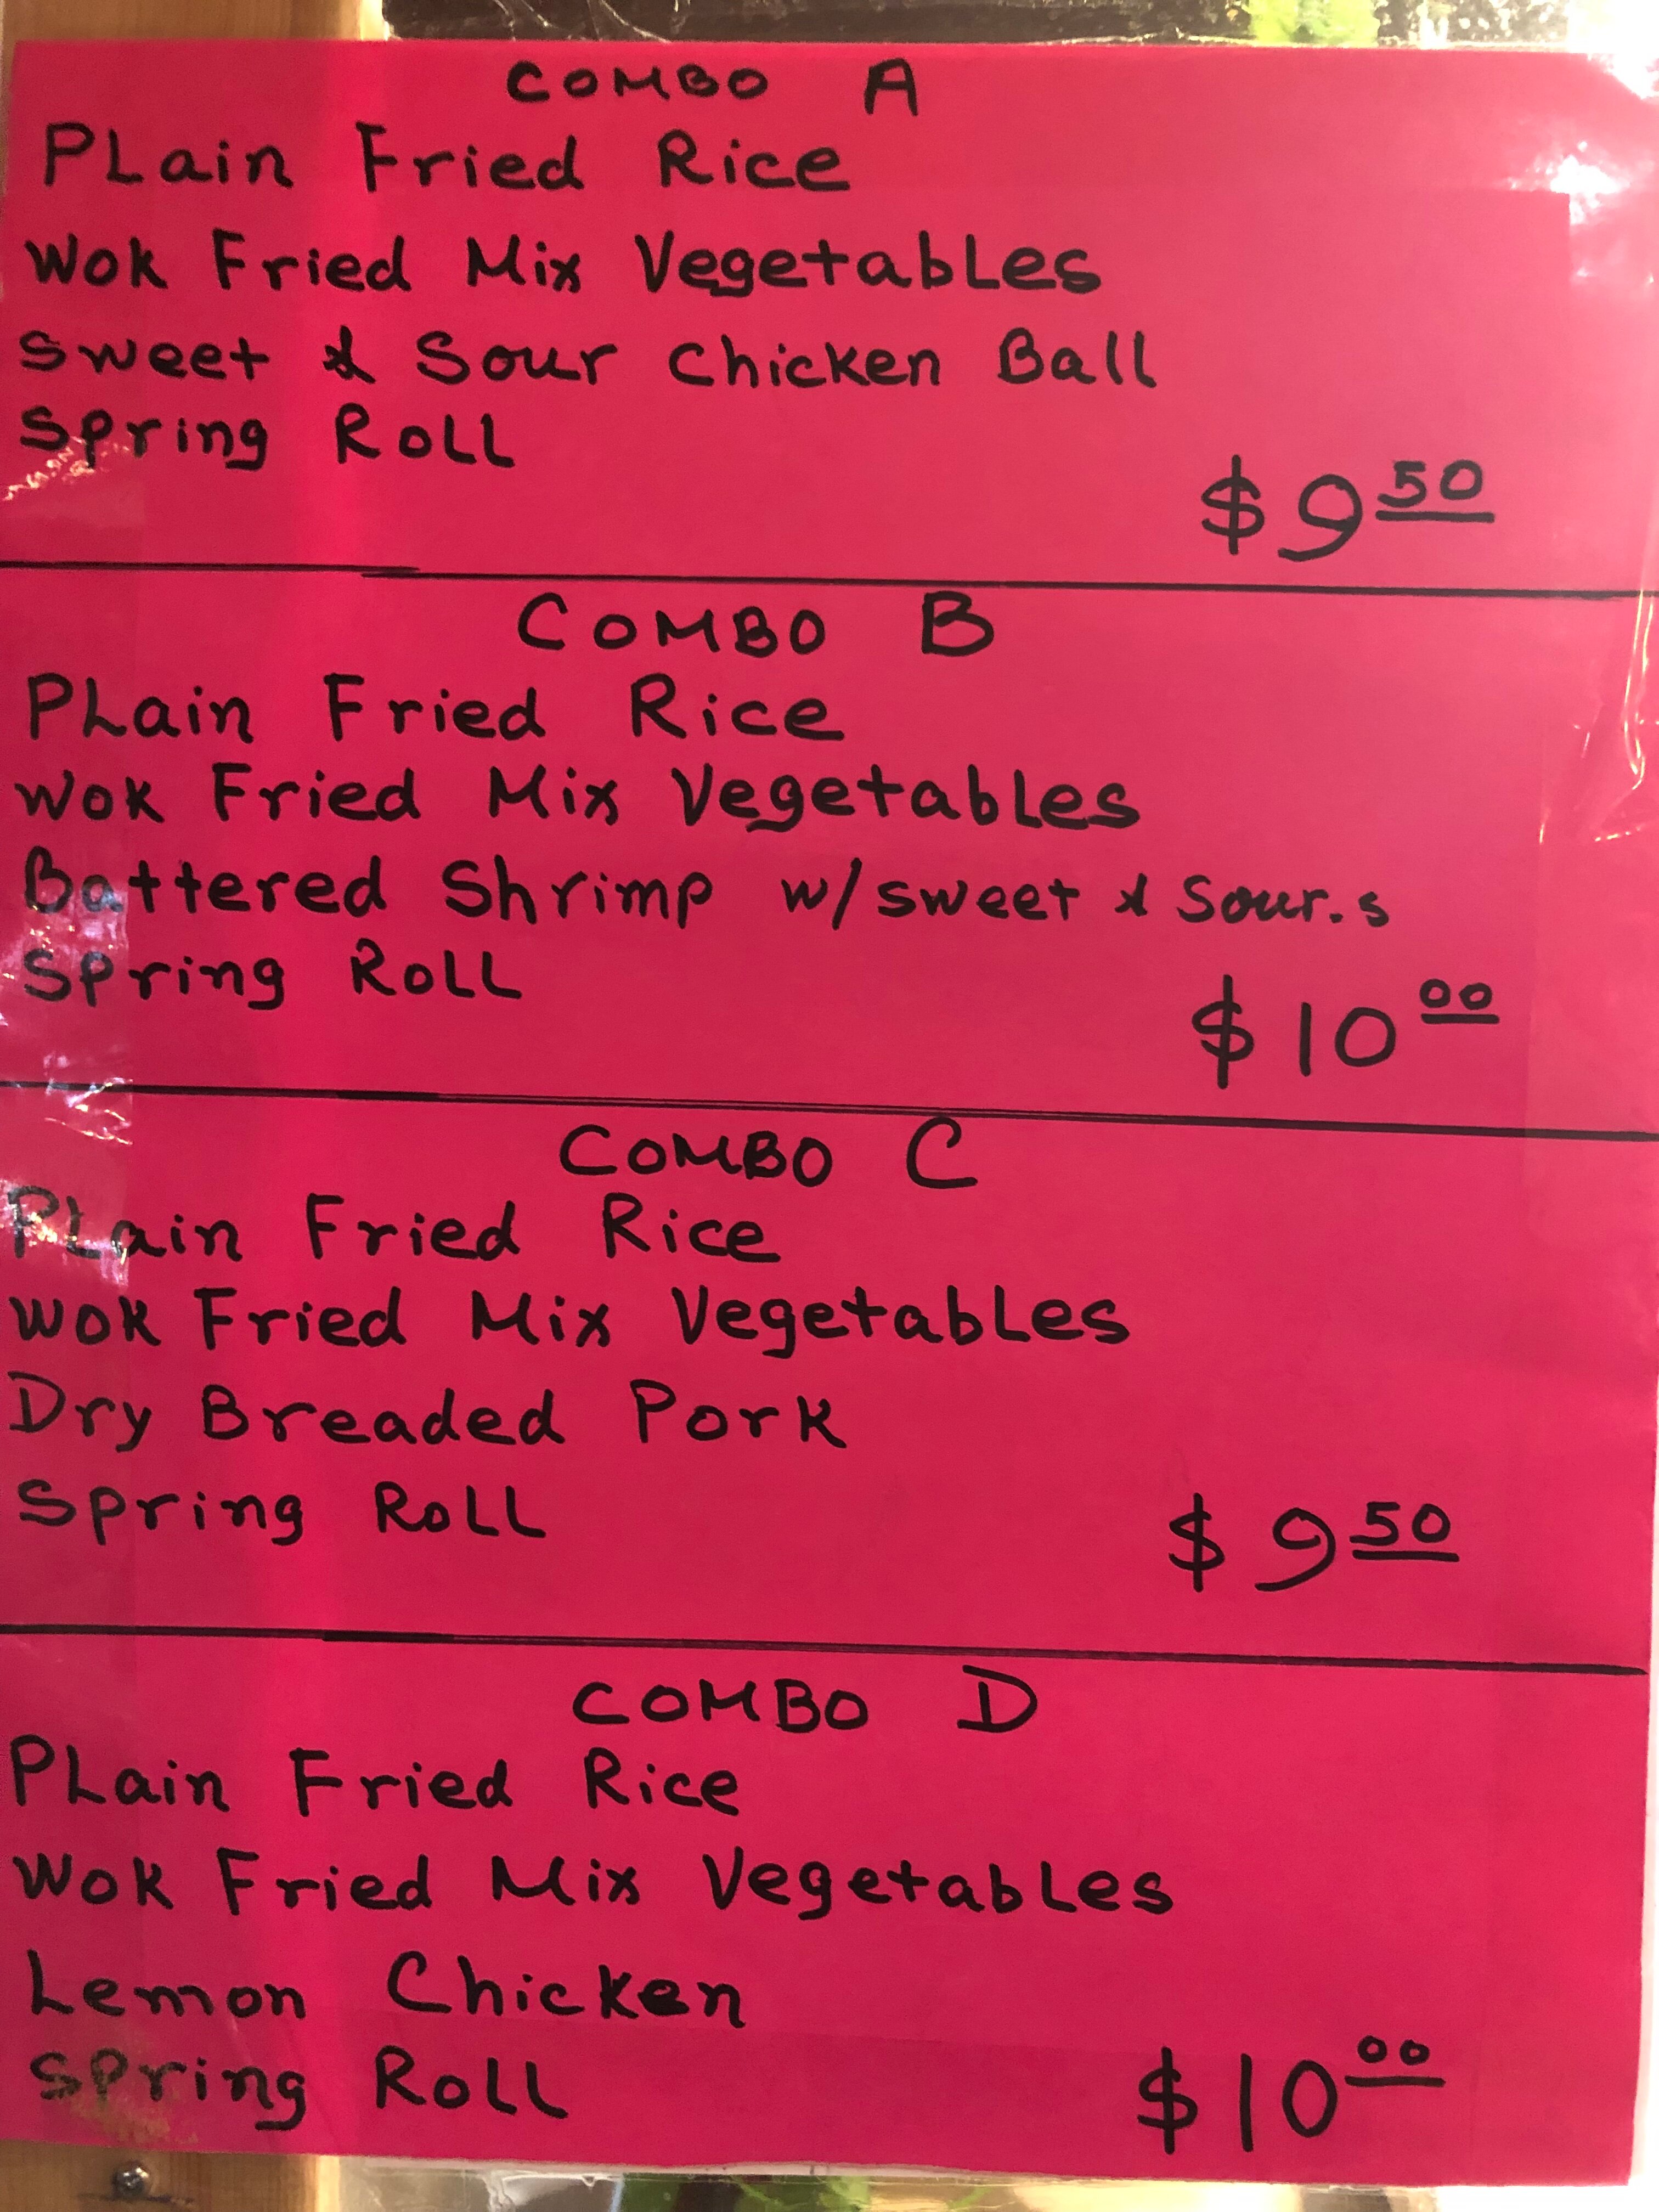 COMBO A
Plain Fried Rice
Wok Fried Mix Vegetables
Sweet & Sour Chicken Ball
Spring Roll
$9.50
COMBO B
Plain Fried Rice
Wok Fried Mix Vegetables
Battered Shrimp w/ sweet & Sour.s
Spring Roll
$10.00
COMBO C
Plain Fried Rice
Wok Fried Mix Vegetables
Dry Breaded Pork
Spring Roll
$9.50
COMBO D
Plain Fried Rice
Wok Fried Mix Vegetables
Lemon Chicken
Spring Roll
$10.00